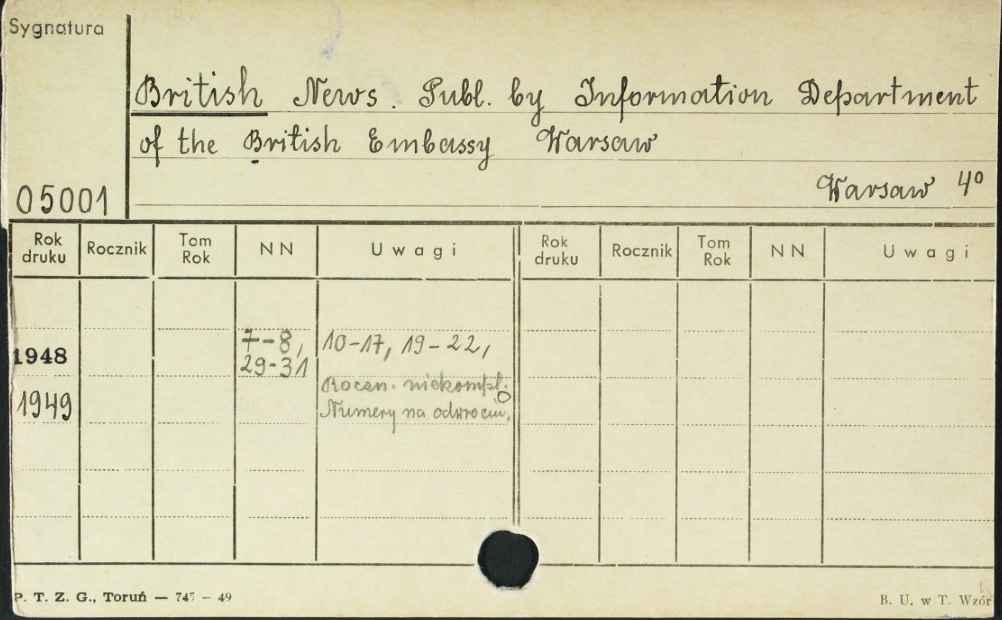 Sygnatura
British News. Publ. by Information Department
of the British Embassy Warsaw
05001
Warsaw 4⁰
Rok druku Rocznik Tom Rok NN Uwagi Rok druku Rocznik Tom Rok NN Uwagi
1948 7-8, 10-17, 19-22,
29-31
1949 Roczn. niekompl.
Numery na odwrociu.
P. T. Z. G., Toruń — 747 — 49
B. U. w T. Wzór